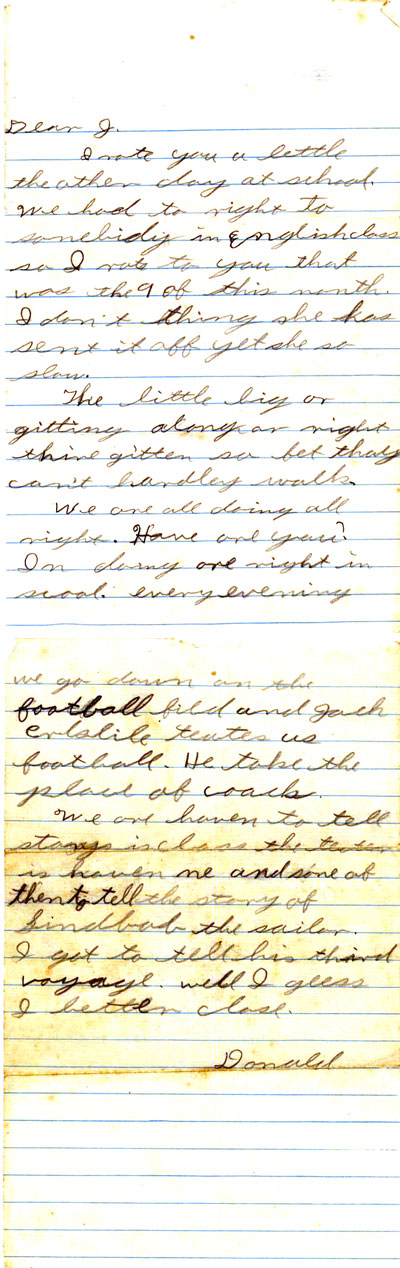 Dear J.
I rote you a little
the other day at school.
We had to right to
somebidy in englishclass
so I rote to you that
was the 9 of this month.
I don't thing she has
sent it off yet she so
slow.
The little big or
gitting along or right
thire gitten so fet thay
can't hardley walk.
We are all doing all
right. How are you?
In doing ore right in
scool. every evening
we go down on the
football fild and Jack
teates us
football. He take the
place of coach.
We are haven to tell
storys is class the teater
is haven me and some of
them to tell the story of
Sindbab the sailor.
I got to tell his third
voyage. well I geess
I better close.
Donald